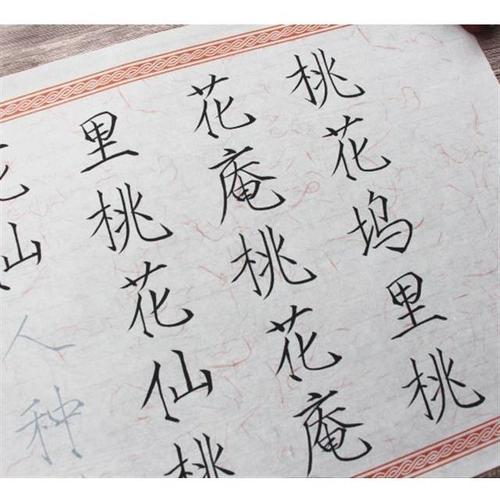 桃花坞里桃
花庵桃花庵
里桃花仙桃
花仙人种